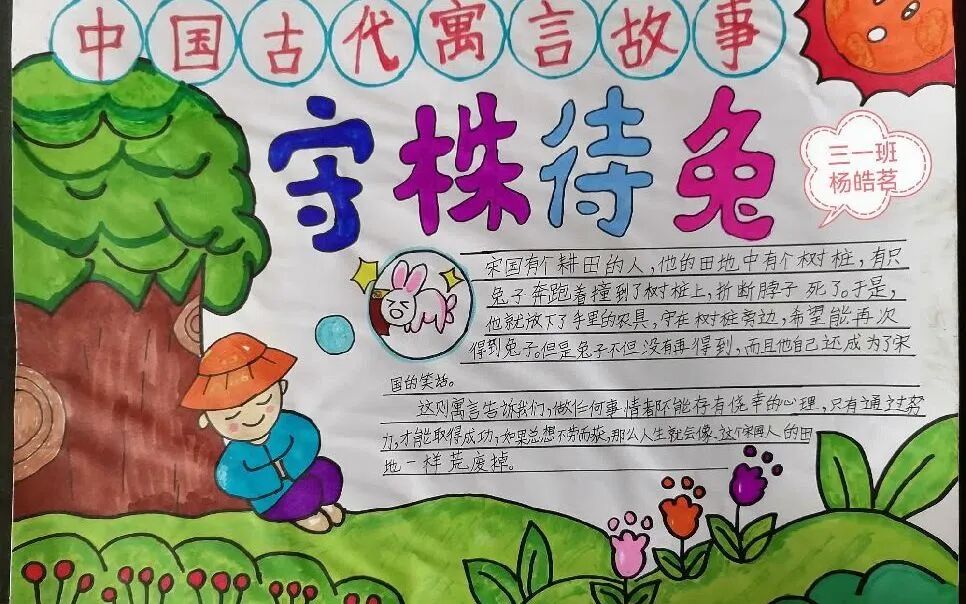 中国古代寓言故事
守株待兔
三一班
杨皓茗
宋国有个耕田的人，他的田地中有个树桩，有只
兔子奔跑着撞到了树桩上，折断脖子死了。于是，
他就放下了手里的农具，守在树桩旁边，希望能再次
得到兔子。但是兔子不但没有再得到，而且他自己还成为了宋
国的笑话。
这则寓言告诉我们，做任何事情都不能存有侥幸的心理，只有通过努
力，才能取得成功，如果总想不劳而获，那么人生就会像这个宋国人的田
地一样荒废掉。